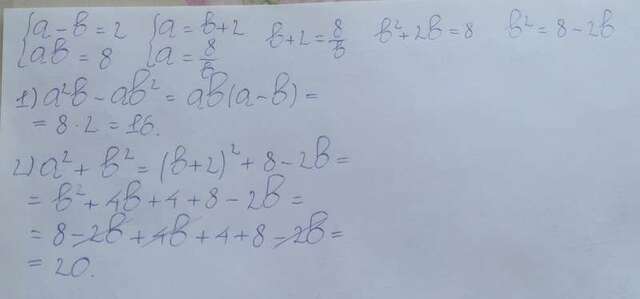 {a-b=2 {a=b+2 b+2=8/b b²+2b=8 b²=8-2b
{ab=8 {a=8/b
1) a²b-ab²=ab(a-b)=
=8·2=16.
2) a²+b²=(b+2)²+8-2b=
=b²+4b+4+8-2b=
=8-2b+4b+4+8-2b=
=20.